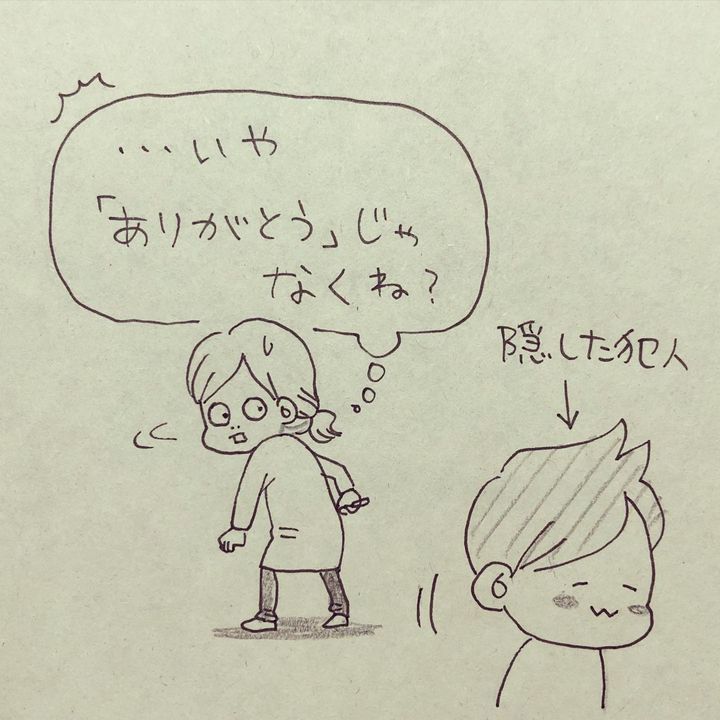 …いや
「ありがとう」じゃ
なくね?
隠した犯人